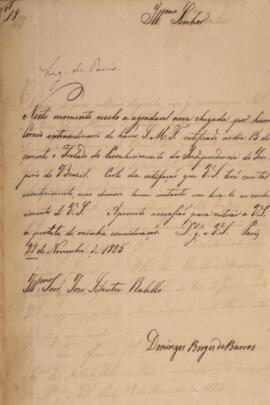 Nº 18
Illmo Senhor
Leg. de Paris.
Neste momento recebo a agradavel nova chegada por hum
Correio extraordinario de haver S. M. F. ratificado no dia 15 do
corrente o Tratado de Reconhecimento da Independencia do Im-
perio do Brazil. Certo da satisfação que V. S. terá com tal
acontecimento, não demoro hum instante em leva-lo ao conhe-
cimento de V. S. Aproveito a occasião para reiterar a V. S.
o protesto de minha consideração. Ds. ge. a V. S. Paris
29 de Novembro de 1825
Illmo Snr. Jose Rebello
Domingos Borges de Barros